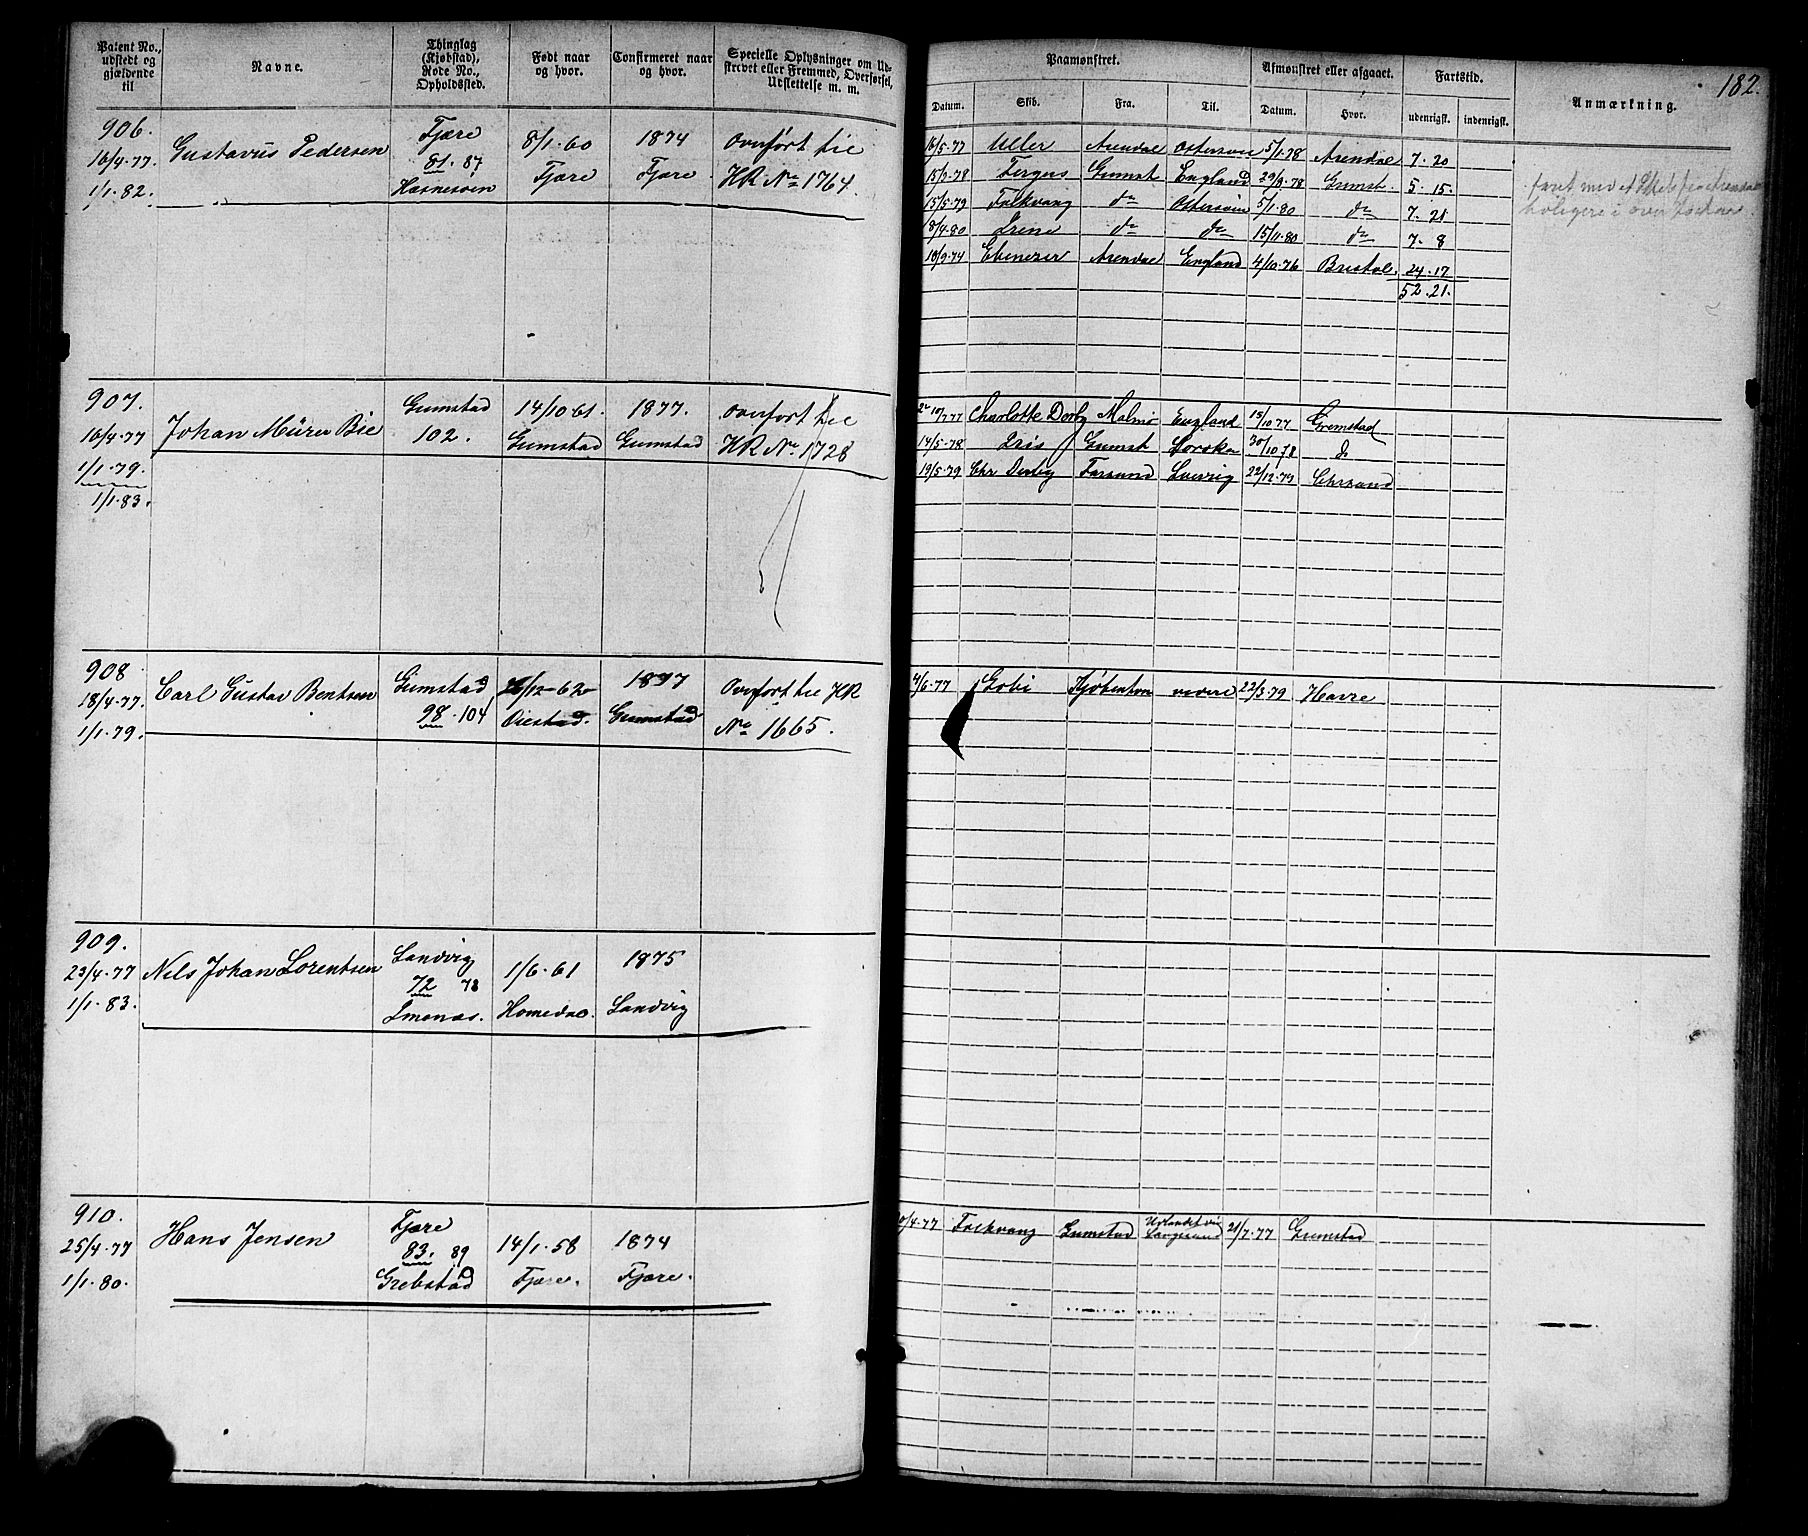 182.
Patent No., udstedt og gjældende til
Navne.
Thinglag (Kjøbstad), Rode No., Opholdssted.
Født naar og hvor.
Confirmeret naar og hvor.
Specielle Oplysninger om Udskrevet eller Fremmed, Overførsel, Udslettelse m. m.
Paamønstret.
Afmønstret eller afgaaet.
Fartstid.
Anmærkning.
Datum. Skib. Fra. Til. Datum. Hvor. udenrigsk. indenrigsk.
906.
16/4.77.
1/1.82.
Gustavus Pedersen
Fjære
81. 87
Hasneseen
8/1.60
Fjære
1874
Fjære
Overført til
HR No 1764.
16/5.77 Uller Arendal Østersøen 5/1.78 Arendal 7.20
15/3.78 Fergus Grimst England 29/9.78 Grimst 5.15
15/5.79 Falkvang do Østersøen 5/1.80 do 7.21
8/4.80 Irene do do 15/11.80 do 7.8
18/9.74 Ebenezer Arendal England 4/10.76 Bristol. 24.17
52.21.
907.
16/4.77
1/1.79.
1/1.83.
Johan Mürer Bie
Grimstad
102.
14/10 61.
Grimstad
1877.
Grimstad
Overført til
HR No 1728
10/7.77 Charlotte Derby Malmø England 15/10 77 Gremstad
14/5.78 Iris Grimst 30/10 78 do
19/5.79 Chr Derby Farsund Laurvig 22/12.79 Chrsand
908
18/4.77.
1/1.79.
Carl Gustav Bentsen
Grimstad
98.104
26/12-62
Øiestad.
1877
Grimstad
Overført til HR
No 1665.
4/6.77 Gobi Kjøbenhvn videre 22/3.79 Havre
909.
23/4.77
1/1.83.
Nils Johan Lorentsen
Landvig
72 78
Imenæs.
1/6.61
Homedal.
1875
Landvig
910.
25/4.77
1/1.80.
Hans Jensen
Fjære
83. 89
Grebstad
14/1.58
Fjære.
1874
Fjære.
0/4.77 Falkvang Grimstad Udlandet via Langesund 21/7.77 Grimstad